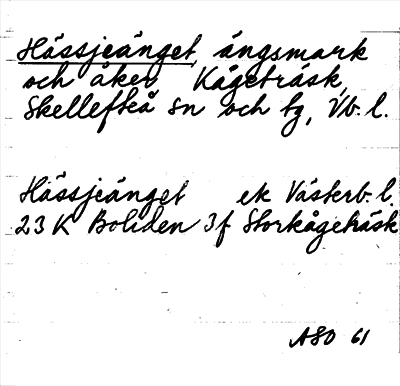 Hässjeänget, ängsmark
och åker Kågeträsk,
Skellefteå sn och tg, Vb. l.
Hässjeänget ek Västerb. l.
23 K Boliden 3f Storkågeträsk
ASO 61